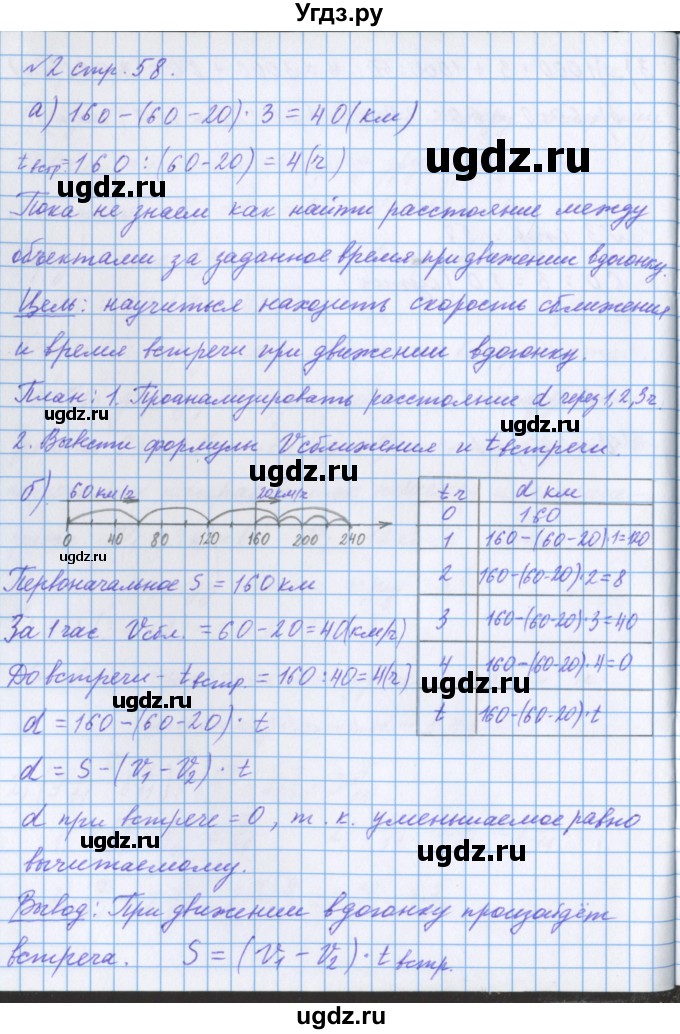 Угдз.ру
№2 стр. 58.
а) 160 – (60 – 20) · 3 = 40 (км)
tвстр = 160 : (60-20) = 4 (ч)
Пока не знаем как найти расстояние между
объектами за заданное время при движении вдогонку.
Цель: научиться находить скорость сближения
и время встречи при движении вдогонку.
План: 1. Проанализировать расстояние d через 1, 2, 3 ч.
2. Вывести формулы Vсближения и tвстречи.
б) 60 км/ч 20 км/ч
0 40 80 120 160 200 240
t ч d км
0 160
1 160 – (60 – 20) · 1 = 120
2 160-(60-20) · 2 = 8
3 160-(60-20) · 3 = 40
4 160-(60-20) · 4 = 0
t 160-(60-20) · t
Первоначальное S = 160 км
За 1 час Vсбл. = 60 – 20 = 40 (км/ч)
До встречи – tвстр. = 160 : 40 = 4 (ч)
d = 160 – (60-20) · t
d = S – (V₁ – V₂) · t
d при встрече = 0, т. к. уменьшаемое равно
вычитаемому.
Вывод: При движении вдогонку произойдёт
встреча. S = (V₁ – V₂) · tвстр.
ugdz.ru
ugdz.ru
ugdz.ru
ugdz.ru
ugdz.ru
ugdz.ru
ugdz.ru
ugdz.ru
ugdz.ru
ugdz.ru
ugdz.ru
ugdz.ru
ugdz.ru